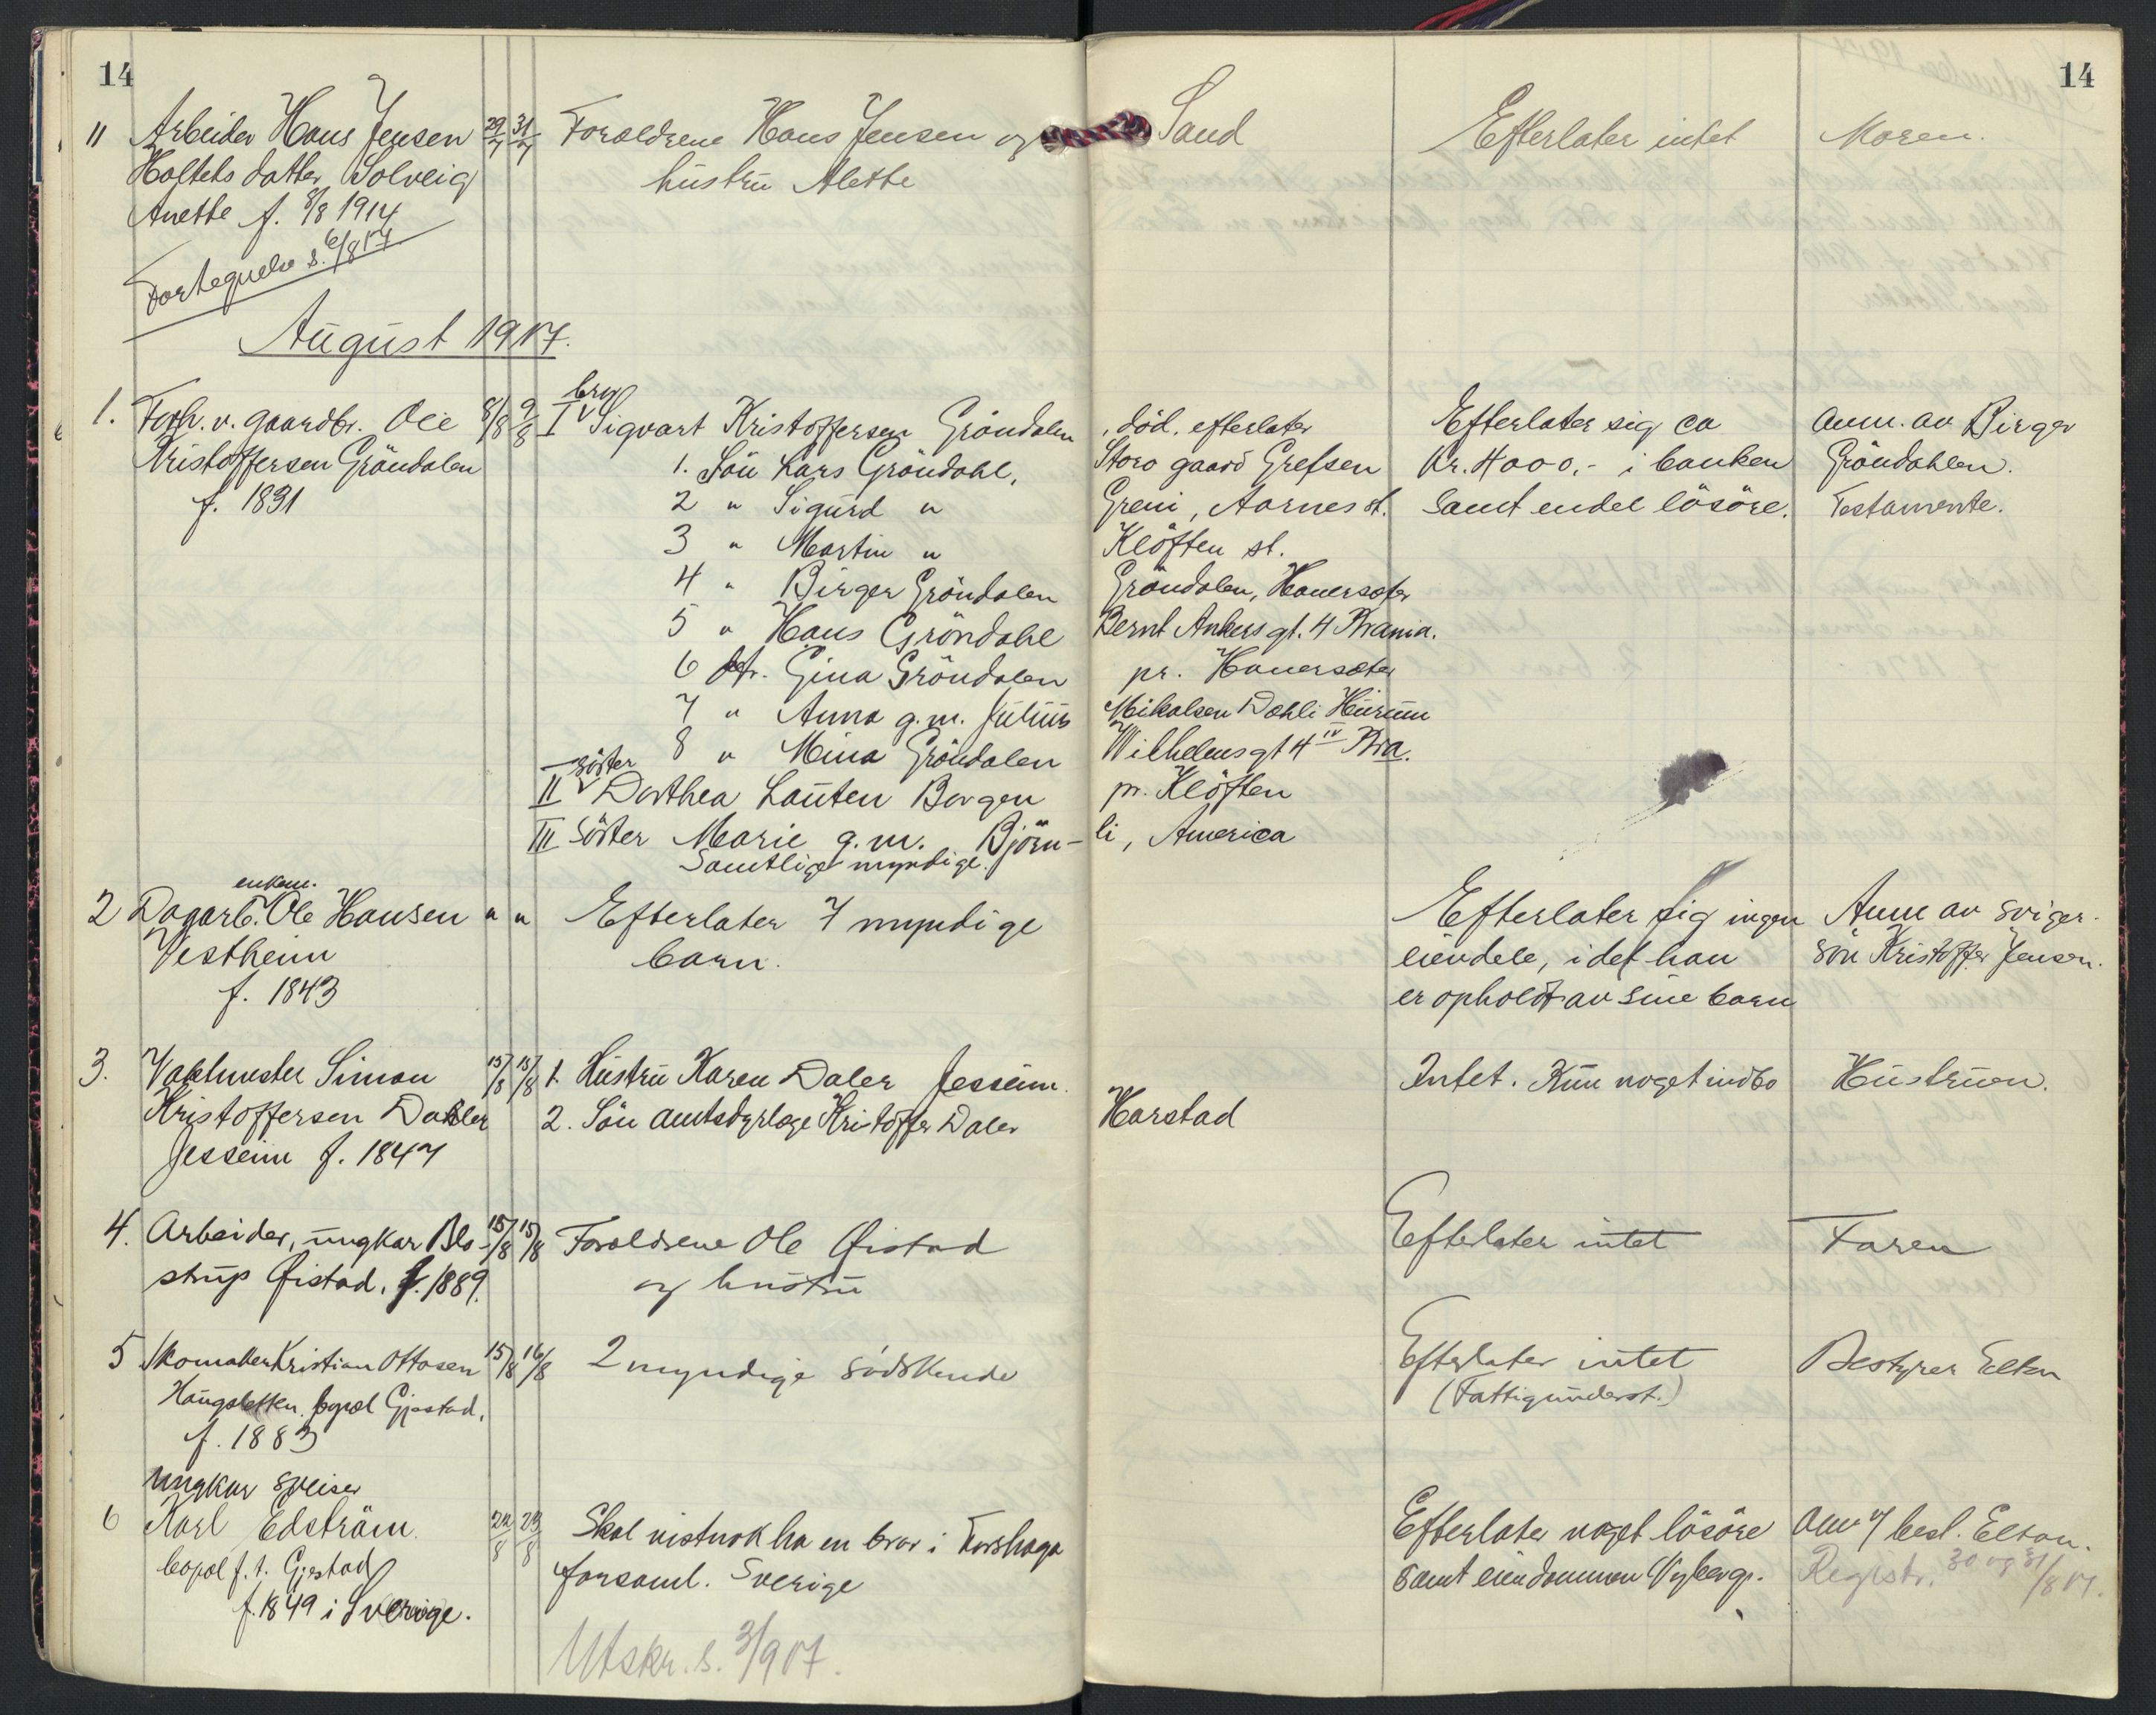 14
14
11 Arbeider Hans Jensen 29/7 31/7 Forældrene Hans Jensen og Sand Efterlater intet Moren.
Holtets datter Solveig hustru Alette
Anette f. 8/8 1914
Fortegnelse s. 6/8 17
August 1917.
bror
1. Forh. v. gaardbr. Ole 8/8 9/8 I Sigvart Kristoffersen Gröndalen , död. efterlater Efterlater sig ca Anm. av Birger
Kristoffersen Gröndalen 1. Sön Lars Gröndahl, Storo gaard Grefsen Kr. 4000.- i banken Gröndahlen.
f. 1831 2 " Sigurd " Greni, Aarnes st. samt endel lösöre. Testamente.
3 " Martin " Klöften st.
4 " Birger Gröndalen Gröndalen, Hauersæter
5 " Hans Gröndahl Bernt Ankers gt. 4 Krania.
6 dtr. Gina Gröndalen pr. Hauersæter
7 " Anna g.m. Julius Mikalsen Dahli Hurum
8 " Mina Gröndalen Wilhelmsgt 4 IV Kra.
söster
II Dorthea Lauten Borgen pr. Klöften
III Söster Marie g.m. Björn- li, America
Samtlige myndige.
enkem.
2 Dagarb. Ole Hansen " " Efterlater 7 myndige Efterlater sig ingen Anm av sviger-
Vestheim barn. eiendele, idet han sön Kristoffer Jensen.
f. 1843 er opholdt av sine barn
3. Vaktmester Simon 15/8 15/8 1. Hustru Karen Daler Jesseim. Intet. Kun noget indbo Hustruen.
Kristoffersen Dahler 2. Sön amtsdyrlæge Kristoffer Daler Harstad
Jesseim f. 1847
4. Arbeider, ungkar Blo- 15/8 15/8 Forældrene Ole Øistad Efterlater intet Faren
strup Øistad, f. 1889. og hustru
5 Skomaker Kristian Ottosen 15/8 16/8 2 myndige södskende Efterlater intet Bestyrer Elton
Haugsletten, bopæl Gjestad, (Fattigunderst.)
f. 1883
ungkar sveiser
6 Karl Edström 22/8 23/8 Skal vistnok ha en bror i Forshaga Efterlater noget lösöre Anm 7 best. Elton.
bopæl f.t. Gjestad forsaml. Sverige samt eiendommen Nyberg. Registr. 30 og 31/8 17.
f. 1849 i Sverige.
Utskr. s. 3/9 17.